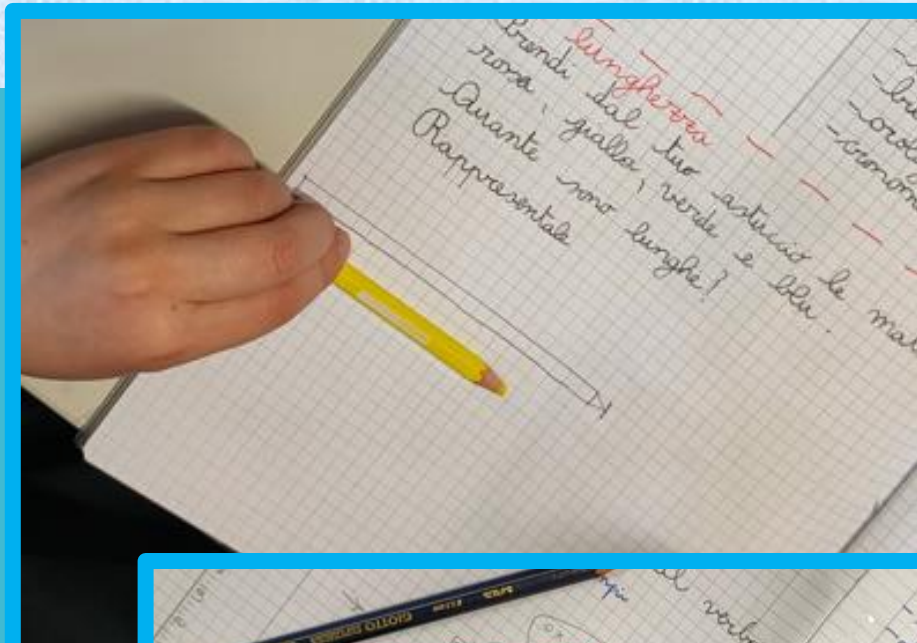 lunghezza
Prendi dal tuo astuccio le
rossa, gialla, verde e blu.
Quante sono lunghe?
Rappresentale
GIOTTO
al verbo